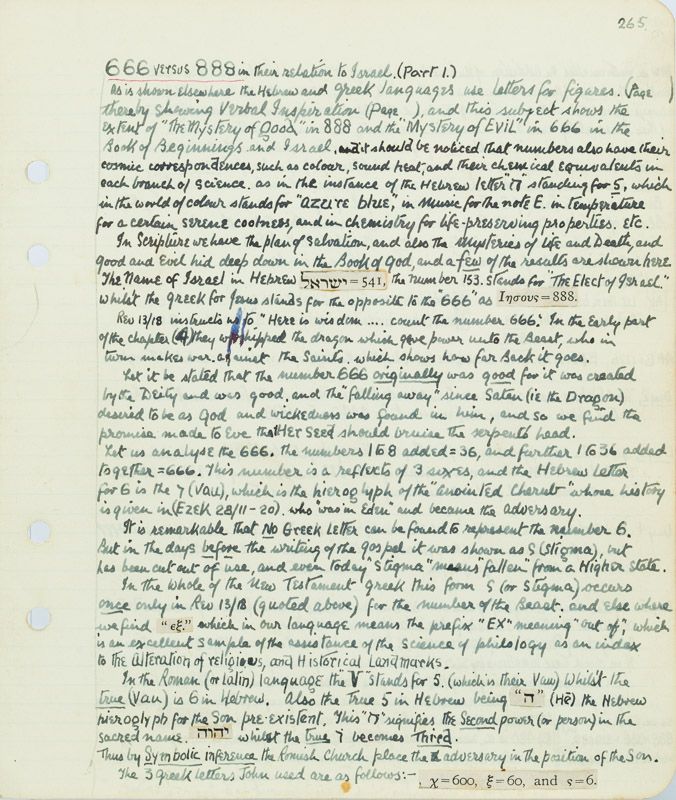 265
666 VERSUS 888 in their relation to Israel. (Part 1.)
As is shown elsewhere the Hebrew and Greek languages use letters for figures. (Page )
thereby Shewing Verbal Inspiration (Page ), and this subject shows the
extent of "The Mystery of Good" in 888 and the "Mystery of EVIL" in 666 in the
Book of Beginnings and Israel. and it should be noticed that numbers also have their
cosmic correspondences, such as colour, sound heat, and their chemical equivalents in
each branch of science. as in the instance of the Hebrew letter "ה" standing for 5, which
in the world of colour stands for "azure blue", in Music for the note E. in temperature
for a certain serene coolness, and in chemistry for life-preserving properties. etc.
In Scripture we have the plan of salvation, and also the Mysteries of Life and Death, and
good and Evil hid deep down in the Book of God, and a few of the results are shown here
The Name of Israel in Hebrew ישראל = 541, the number 153. Stands for "The Elect of Israel."
Whilst the Greek for Jesus stands for the opposite to the "666" as Ιησους = 888.
Rev 13/18 instructs us to "Here is wisdom .... count the number 666". In the Early part
of the chapter (4) they worshipped the dragon which gave power unto the Beast, who in
turn makes war. against the Saints. which shows how far back it goes.
Let it be Noted that the number 666 originally was good for it was created
by the Deity and was good, and the "falling away" since Satan (ie the Dragon)
desired to be as God and wickedness was found in him, and so we find the
promise made to Eve that HER SEED should bruise the serpents head.
Let us analyse the 666. The numbers 1 to 8 added = 36, and further 1 to 36 added
together = 666. This number is a reflects of 3 sixes, and the Hebrew Letter
for 6 is the ו (Vau), which is the hieroglyph of the "anointed Cherub" whose history
is given in (EZEK 28/11-20). who "was in Eden" and became the adversary.
It is remarkable that NO Greek Letter can be found to represent the number 6.
But in the days before the writing of the gospel it was shown as ς (Stigma), but
has been cut out of use, and even today "Stigma" means fallen from a Higher State.
In the whole of the New Testament Greek this form ς (or Stigma) occurs
once only in Rev 13/18 (quoted above) for the number of the Beast. and else where
we find "εξ." which in our language means the prefix "EX" meaning "out of", which
is an excellent sample of the assistance of the science of philology as an index
to the alteration of religious, and Historical Landmarks.
In the Roman (or Latin) language the "V" stands for 5. (which is their Vau) Whilst the
true (Vau) is 6 in Hebrew. Also the true 5 in Hebrew being "ה" (Hē) the Hebrew
hieroglyph for the Son pre-existent. This "ה" signifies the Second power (or person) in the
sacred name. יהוה whilst the true ו becomes Third.
Thus by Symbolic inference the Romish Church place the adversary in the position of the Son.
The 3 Greek letters John used are as follows:- χ = 600, ξ = 60, and ς = 6.